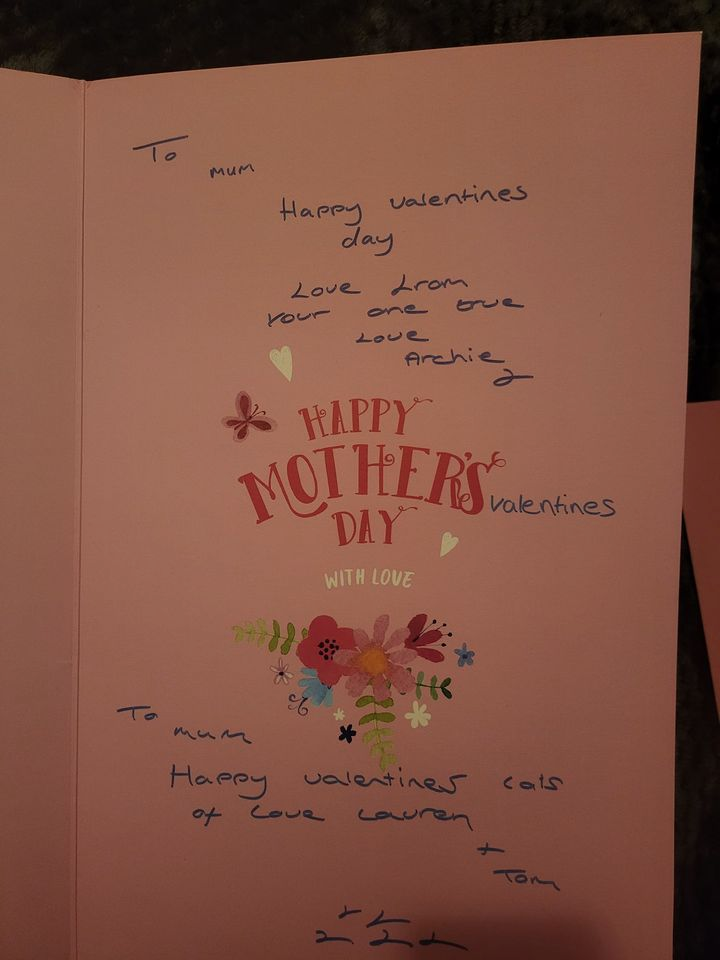 To
mum
Happy valentines
day
Love from
your one true
Love
Archie
x
HAPPY
MOTHER'S valentines
DAY
WITH LOVE
To
mum
Happy valentines
of Love Lauren
+
Tom
x x
x x x